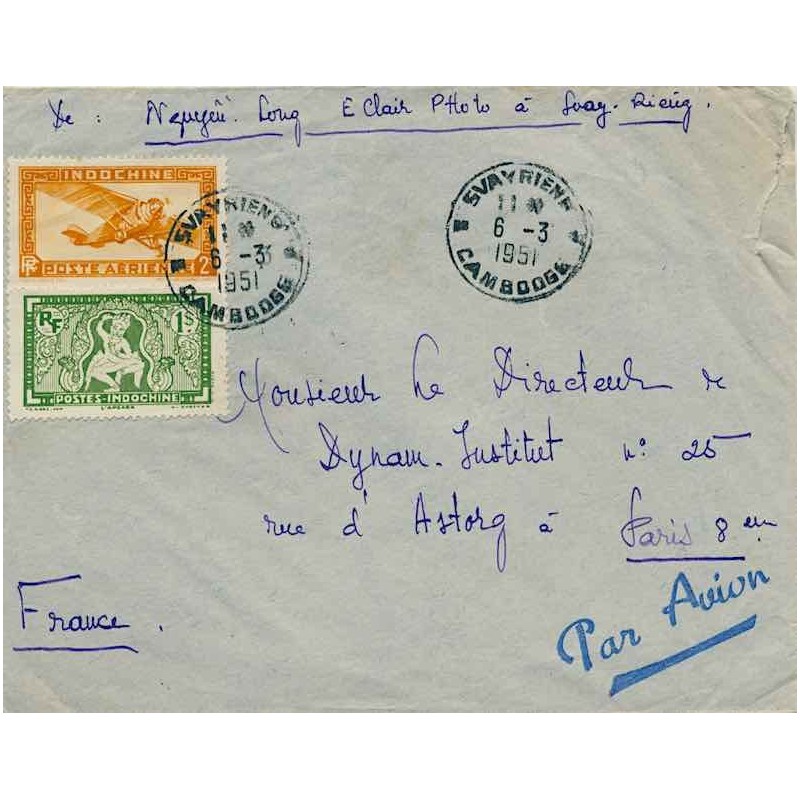 De : Nguyên Long E Clair PHoto à Svay-Rieng.
INDOCHINE
RF POSTE AÉRIENNE 2
SVAYRIENG
11
6 -3
1951
CAMBODGE
SVAYRIENG
11
6 -3
1951
CAMBODGE
RF 1$
POSTES-INDOCHINE
L'APSARA
Monsieur Le Directeur de
Dynam-Institut n: 25
rue d'Astorg à Paris 8 em
France.
Par Avion